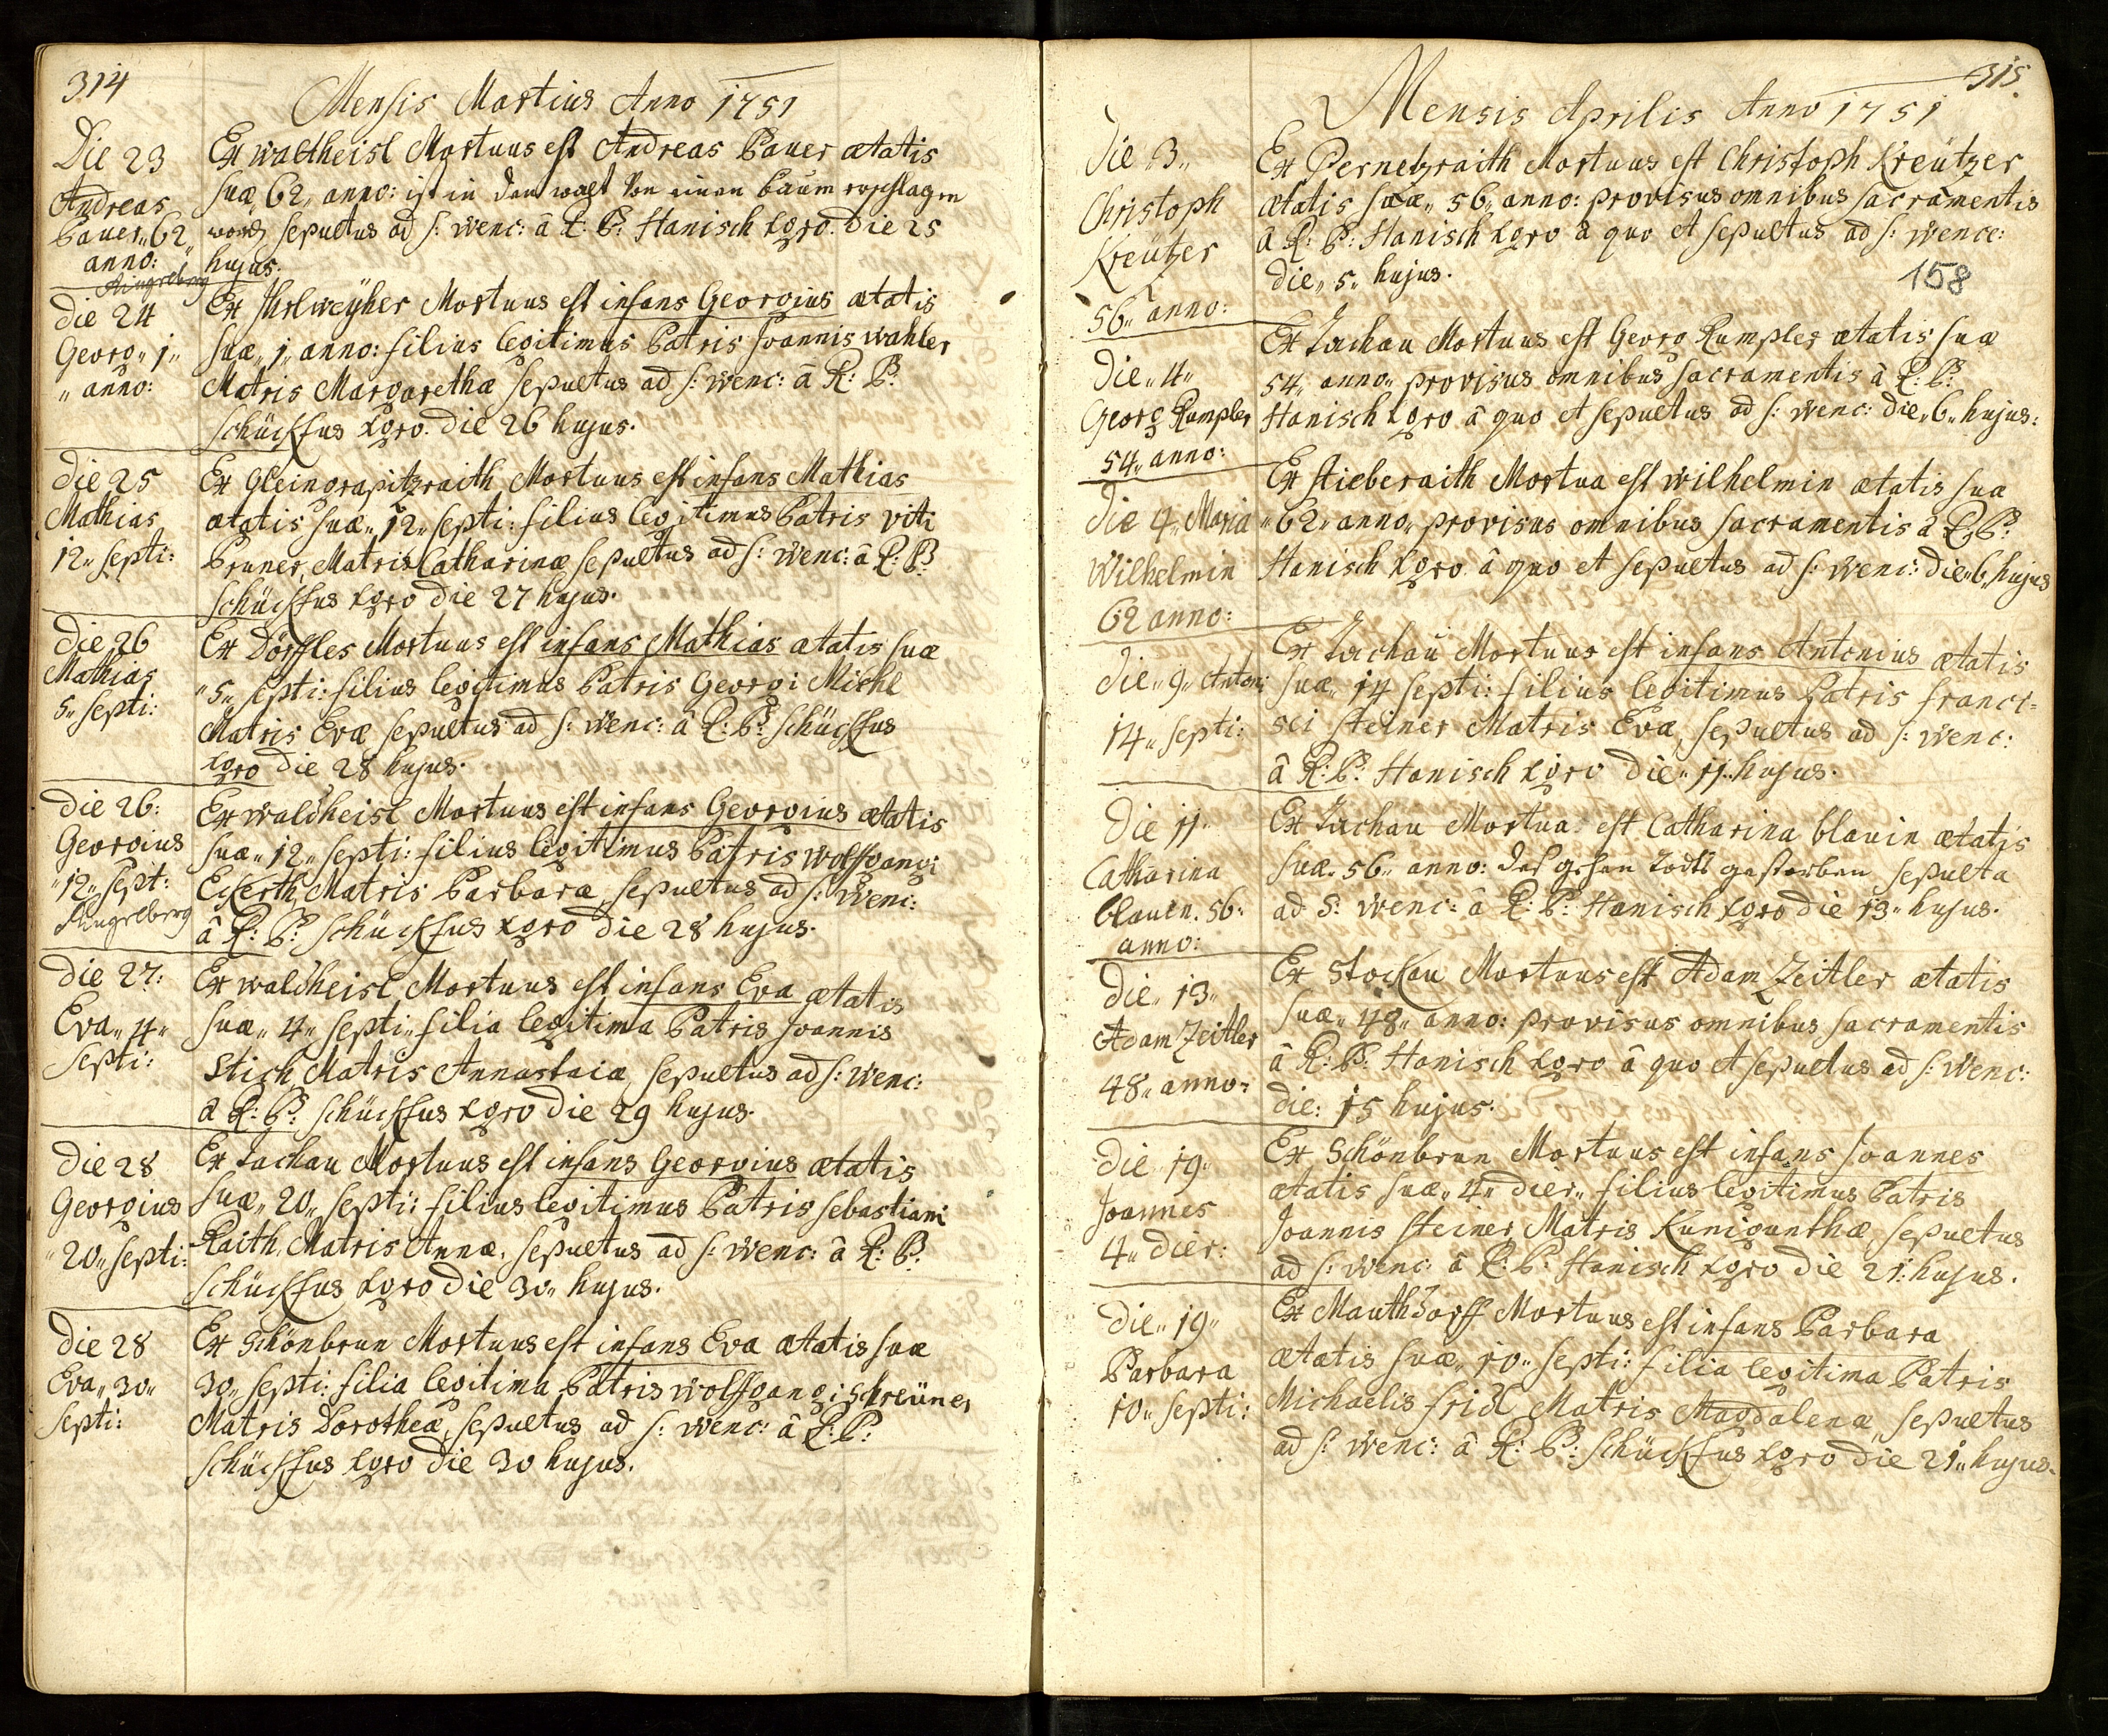 314
Mensis Martius Anno 1751
Die 23
Andreas
Bauer „62„
anno:
Ringelberg
Ex waltheisl Mortuus est Andreas Bauer ætatis
suæ 62„ anno: ist in den walt Von einen baum erschlagen
word, sepultus ad s: wenc: â R: P: Hanisch Xgro. die 25
hujus.
die 24
Georg „1„
„anno:
Ex Ihrlweÿher Mortuus est infans Georgius ætatis
suæ „1„ anno: filius legitimus Patris Joannis wahler
Matris Margarethæ sepultus ad s: wenc: â R: P:
schückfus Xgro. die 26 hujus.
die 25
Mathias
12„ septi:
Ex Gleingrapitzraith Mortuus est infans Mathias
ætatis suæ „12„ septi: filius legitimus Patris viti
Pruner, Matris Catharinæ sepultus ad s: wenc: â R: P:
schückfus Xgro die 27 hujus.
die 26
Mathias
5„ septi:
Ex Dörffles Mortuus est infans Mathias ætatis suæ
„5„ septi: filius legitimus Patris Georgi Michl
Matris Evæ sepultus ad s: wenc: â R: P: schückfus
Xgro die 28 hujus.
die 26:
Georgius
„12„ sept:
Ringelberg
Ex waldheisl Mortuus est infans Georgius ætatis
suæ „12„ septi: filius legitimus Patris wolfgangi
Eckerth, Matris Barbaræ, sepultus ad s: wenc:
â R: P: schückfus Xgro die 28 hujus.
die 27:
Eva „4„
septi:
Ex waldheisl Mortuus est infans Eva ætatis
suæ „4„ septi„ filia legitima Patris Joannis
Stich, Matris Annastaiæ, sepultus ad s: wenc:
â R: P: schückfus Xgro die 29 hujus.
die 28
Georgius
„20„ septi:
Ex Tachau Mortuus est infans Georgius ætatis
suæ „20„ septi: filius legitimus Patris sebastiani
Raith, Matris Annæ, sepultus ad s: wenc: â R: P:
schückfus Xgro die 30„ hujus.
die 28
Eva „30„
septi:
Ex schönbrun Mortuus est infans Eva ætatis suæ
30„ septi: filia legitima Patris wolfgangi schreüner
Matris Dorotheæ, sepultus ad s: wenc: â R: P:
schückfus Xgro die 30 hujus.
315.
Mensis Aprilis Anno 1751
die „3„
Christoph
Kreützer
56„ anno:
Ex Pernetzraith Mortuus est Christoph Kreützer
ætatis suæ „56„ anno: provisus omnibus sacramentis
â R: P: Hanisch Xgro â quo et sepultus ad s: wence:
die „5„ hujus.
158
die „4„
Georg Rumpler
54„ anno:
Ex Tachau Mortuus est Georg Rumpler ætatis suæ
54„ anno„ provisus omnibus sacramentis â R: P:
Hanisch Xgro â quo et sepultus ad s: wenc: die „6„ hujus:
die 4„ Maria
Wilhelmin
62 anno:
Ex stieberaith Mortua est wilhelmin ætatis sua
„62„ anno„ provisus omnibus sacramentis â R: P:
Hanisch Xgro â quo et sepultus ad s: wenc: die „6„ hujus
die „9„ Antoni
14„ septi:
Ex Tachau Mortuus est infans Antonius ætatis
suæ „14 septi: filius legitimus Patris franci=
sci steiner Matris Evæ, sepultus ad s: wenc:
â R: P: Hanisch Xgro die „11„ hujus.
die 11„
Catharina
blauin. 56„
anno:
Ex Tachau Mortua est Catharina blauin ætatis
suæ „56„ anno: des gehen Todts gestorben sepulta
ad s: wenc: â R: P: Hanisch Xgro die 13„ hujus.
die „13„
Adam Zeitler
48„ anno:
Ex Stockau Mortuus est Adam Zeitler ætatis
suæ „48„ anno: provisus omnibus sacramentis
â R: P: Hanisch Xgro â quo et sepultus ad s: wenc:
die: 15 hujus.
die „19„
Joannes
4„ dier:
Ex schönbrun Mortuus est infans Joannes
ætatis suæ „4„ dier„ filius legitimus Patris
Joannis steiner, Matris Kunigunthæ, sepultus
ad s: wenc: â R: P: Hanisch Xgro die 21: hujus.
die „19„
Barbara
10„ septi:
Ex Mauthdorff Mortuus est infans Barbara
ætatis suæ „10„ septi: filia legitima Patris
Michaelis fridl Matris Magdalenæ, sepultus
ad s: wenc: â R: P: schückfus Xgro die 21„ hujus.